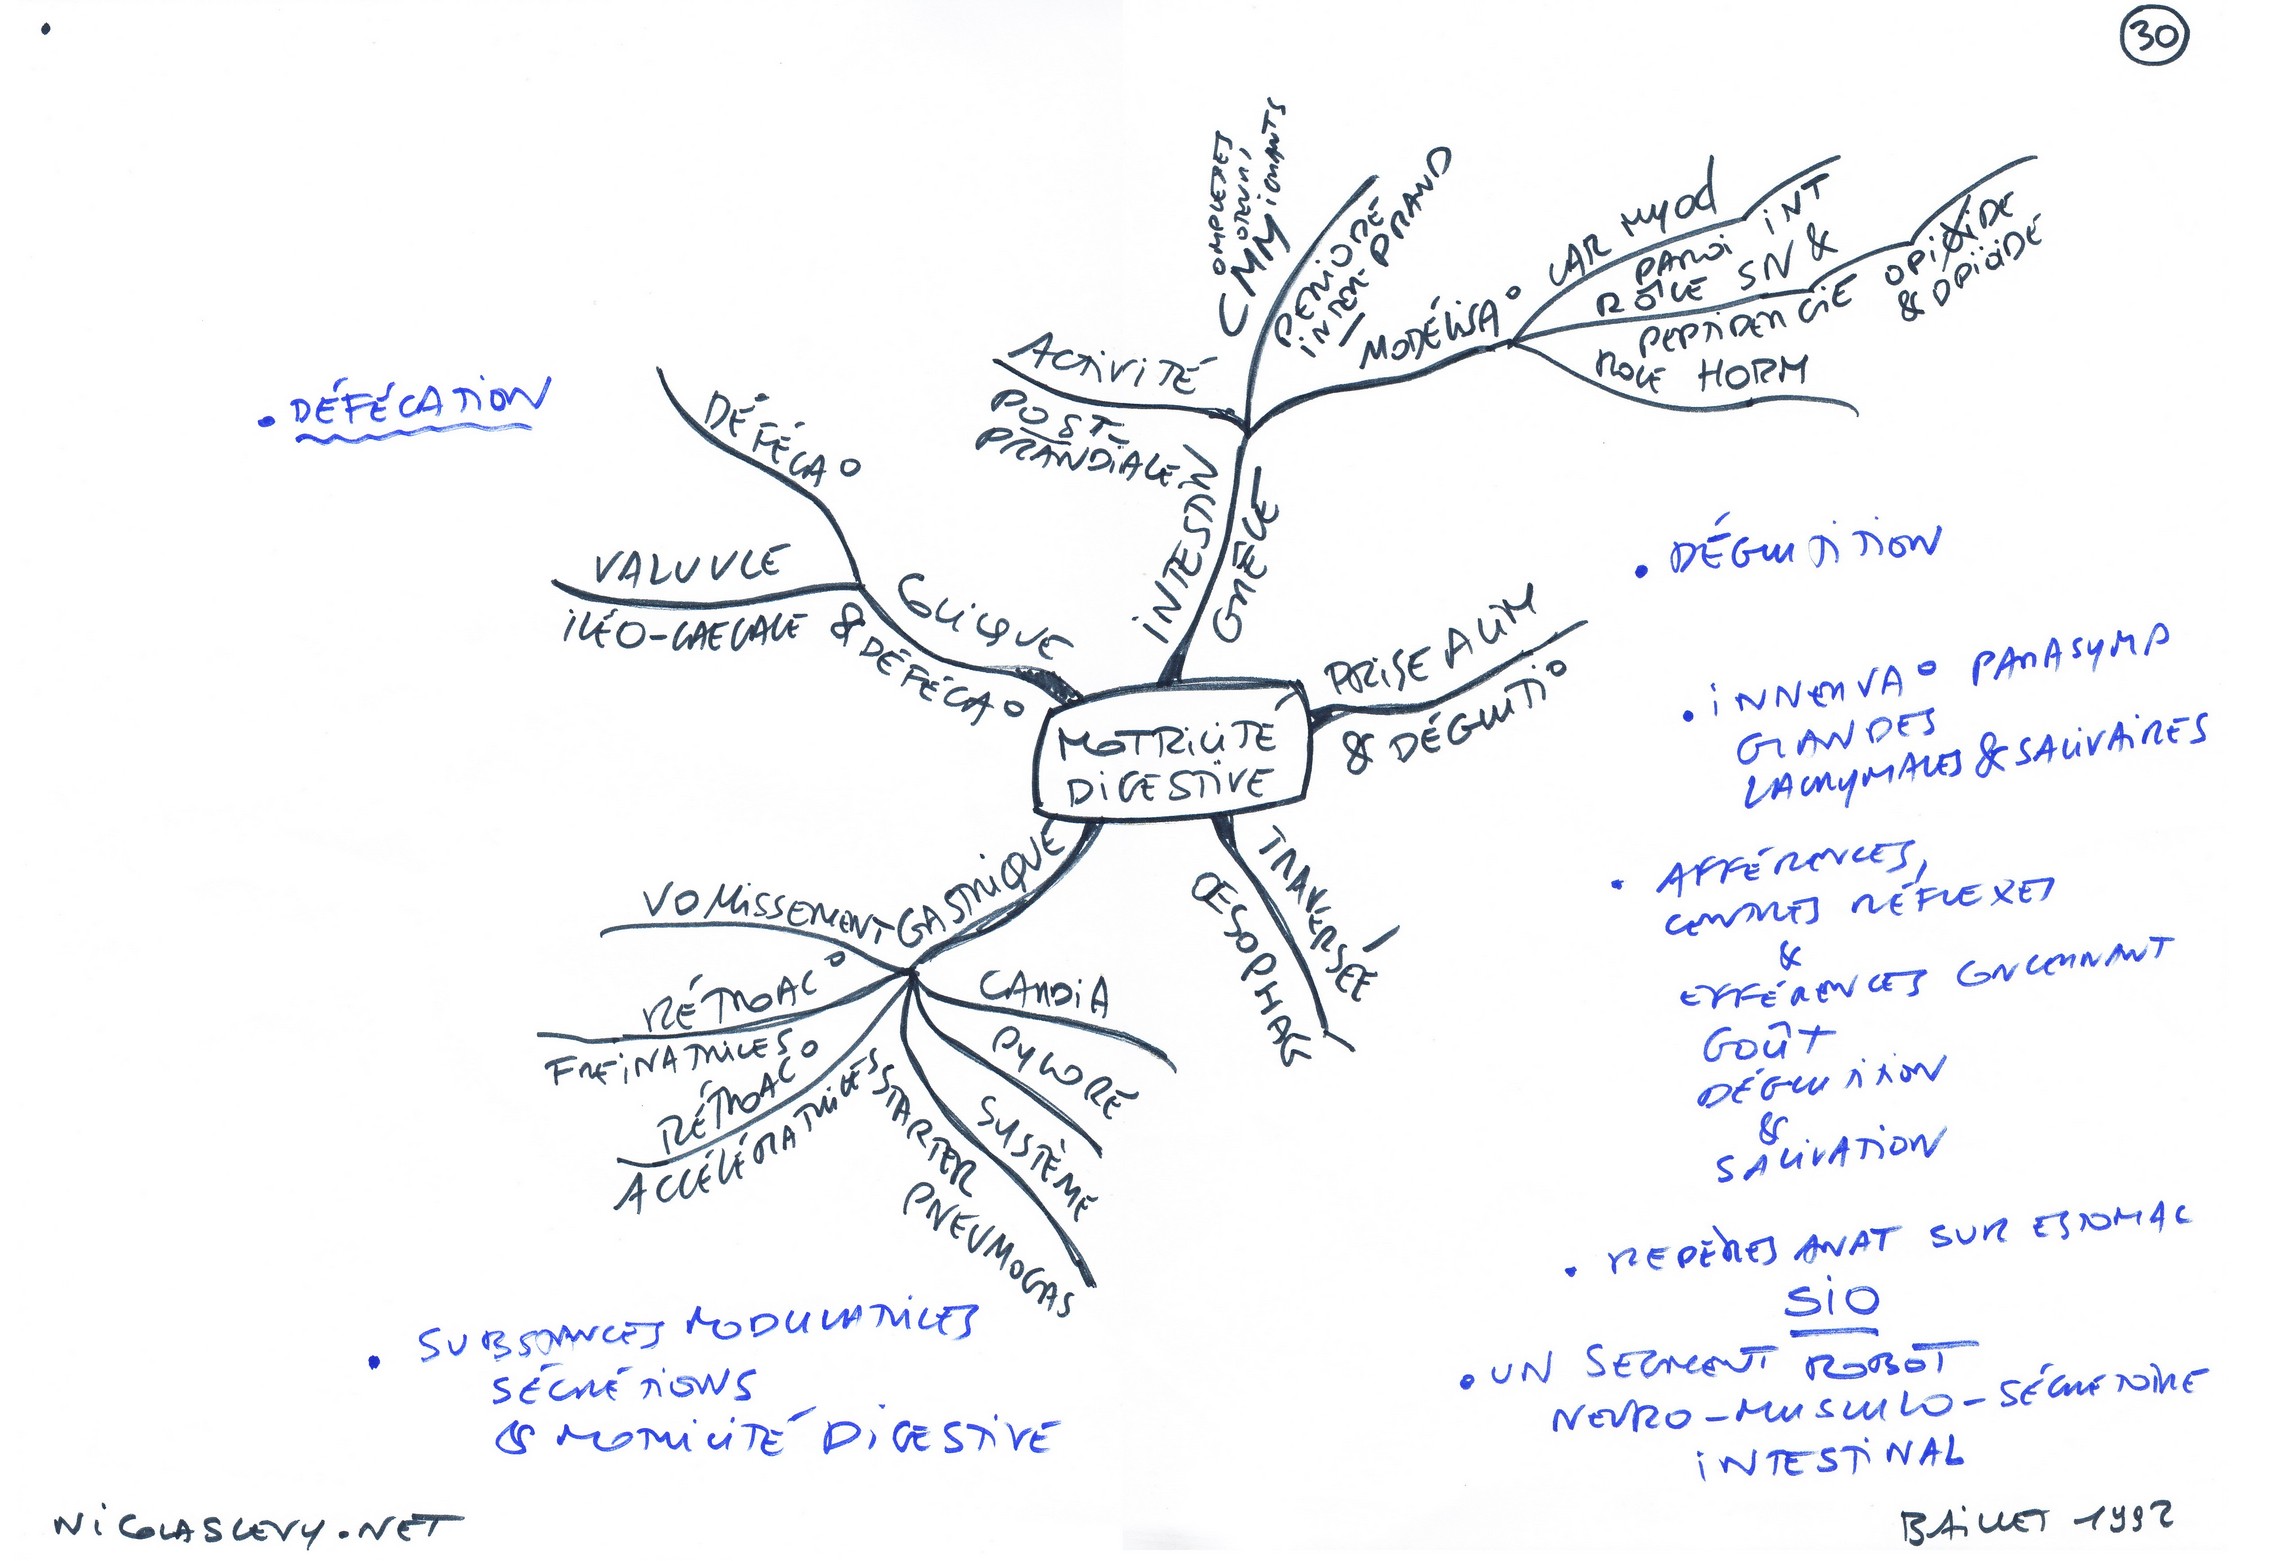 30
OMPLEXES
OTEURS
IGRANTS
CMM
PERIODE
INTER-PRAND
ACTIVITÉ
POST-
PRANDIALE
MODÉLISA°
CAR MYOD
PAROI INT
RÔLE SN &
PEPTIDERGIE OPIOIDE
& OPIOIDE
ROLE HORM
INTESTIN
GRÊLE
DÉFÉCATION
DÉFÉCA°
VALUVLE
ILÉO-CAECALE
COLIQUE
& DÉFÉCA°
MOTRICITÉ
DIGESTIVE
PRISE ALIM
& DÉGLUTI°
TRAVERSÉE
OESOPHAG
GASTRIQUE
VOMISSEMENT
RÉTROAC°
FREINATRICES
RÉTROAC°
ACCÉLÉRATRICES
CARDIA
PYLORE
SYSTÈME
STARTER
PNEUMOGAS
• DÉGLUTITION
• INNERVA° PARASYMP
GLANDES
LACRYMALES & SALIVAIRES
• AFFÉRENCES,
CENTRES RÉFLEXES
&
EFFÉRENCES CONCERNANT
GOÛT
DÉGLUTITION
&
SALIVATION
• REPÈRES ANAT SUR ESTOMAC
SIO
• UN SEGMENT ROBOT
NEURO-MUSCULO-SÉCRETOIRE
INTESTINAL
• SUBSTANCES MODULATRICES
SÉCRÉTIONS
& MOTRICITÉ DIGESTIVE
NICOLASLEVY.NET
BAILLET 1992